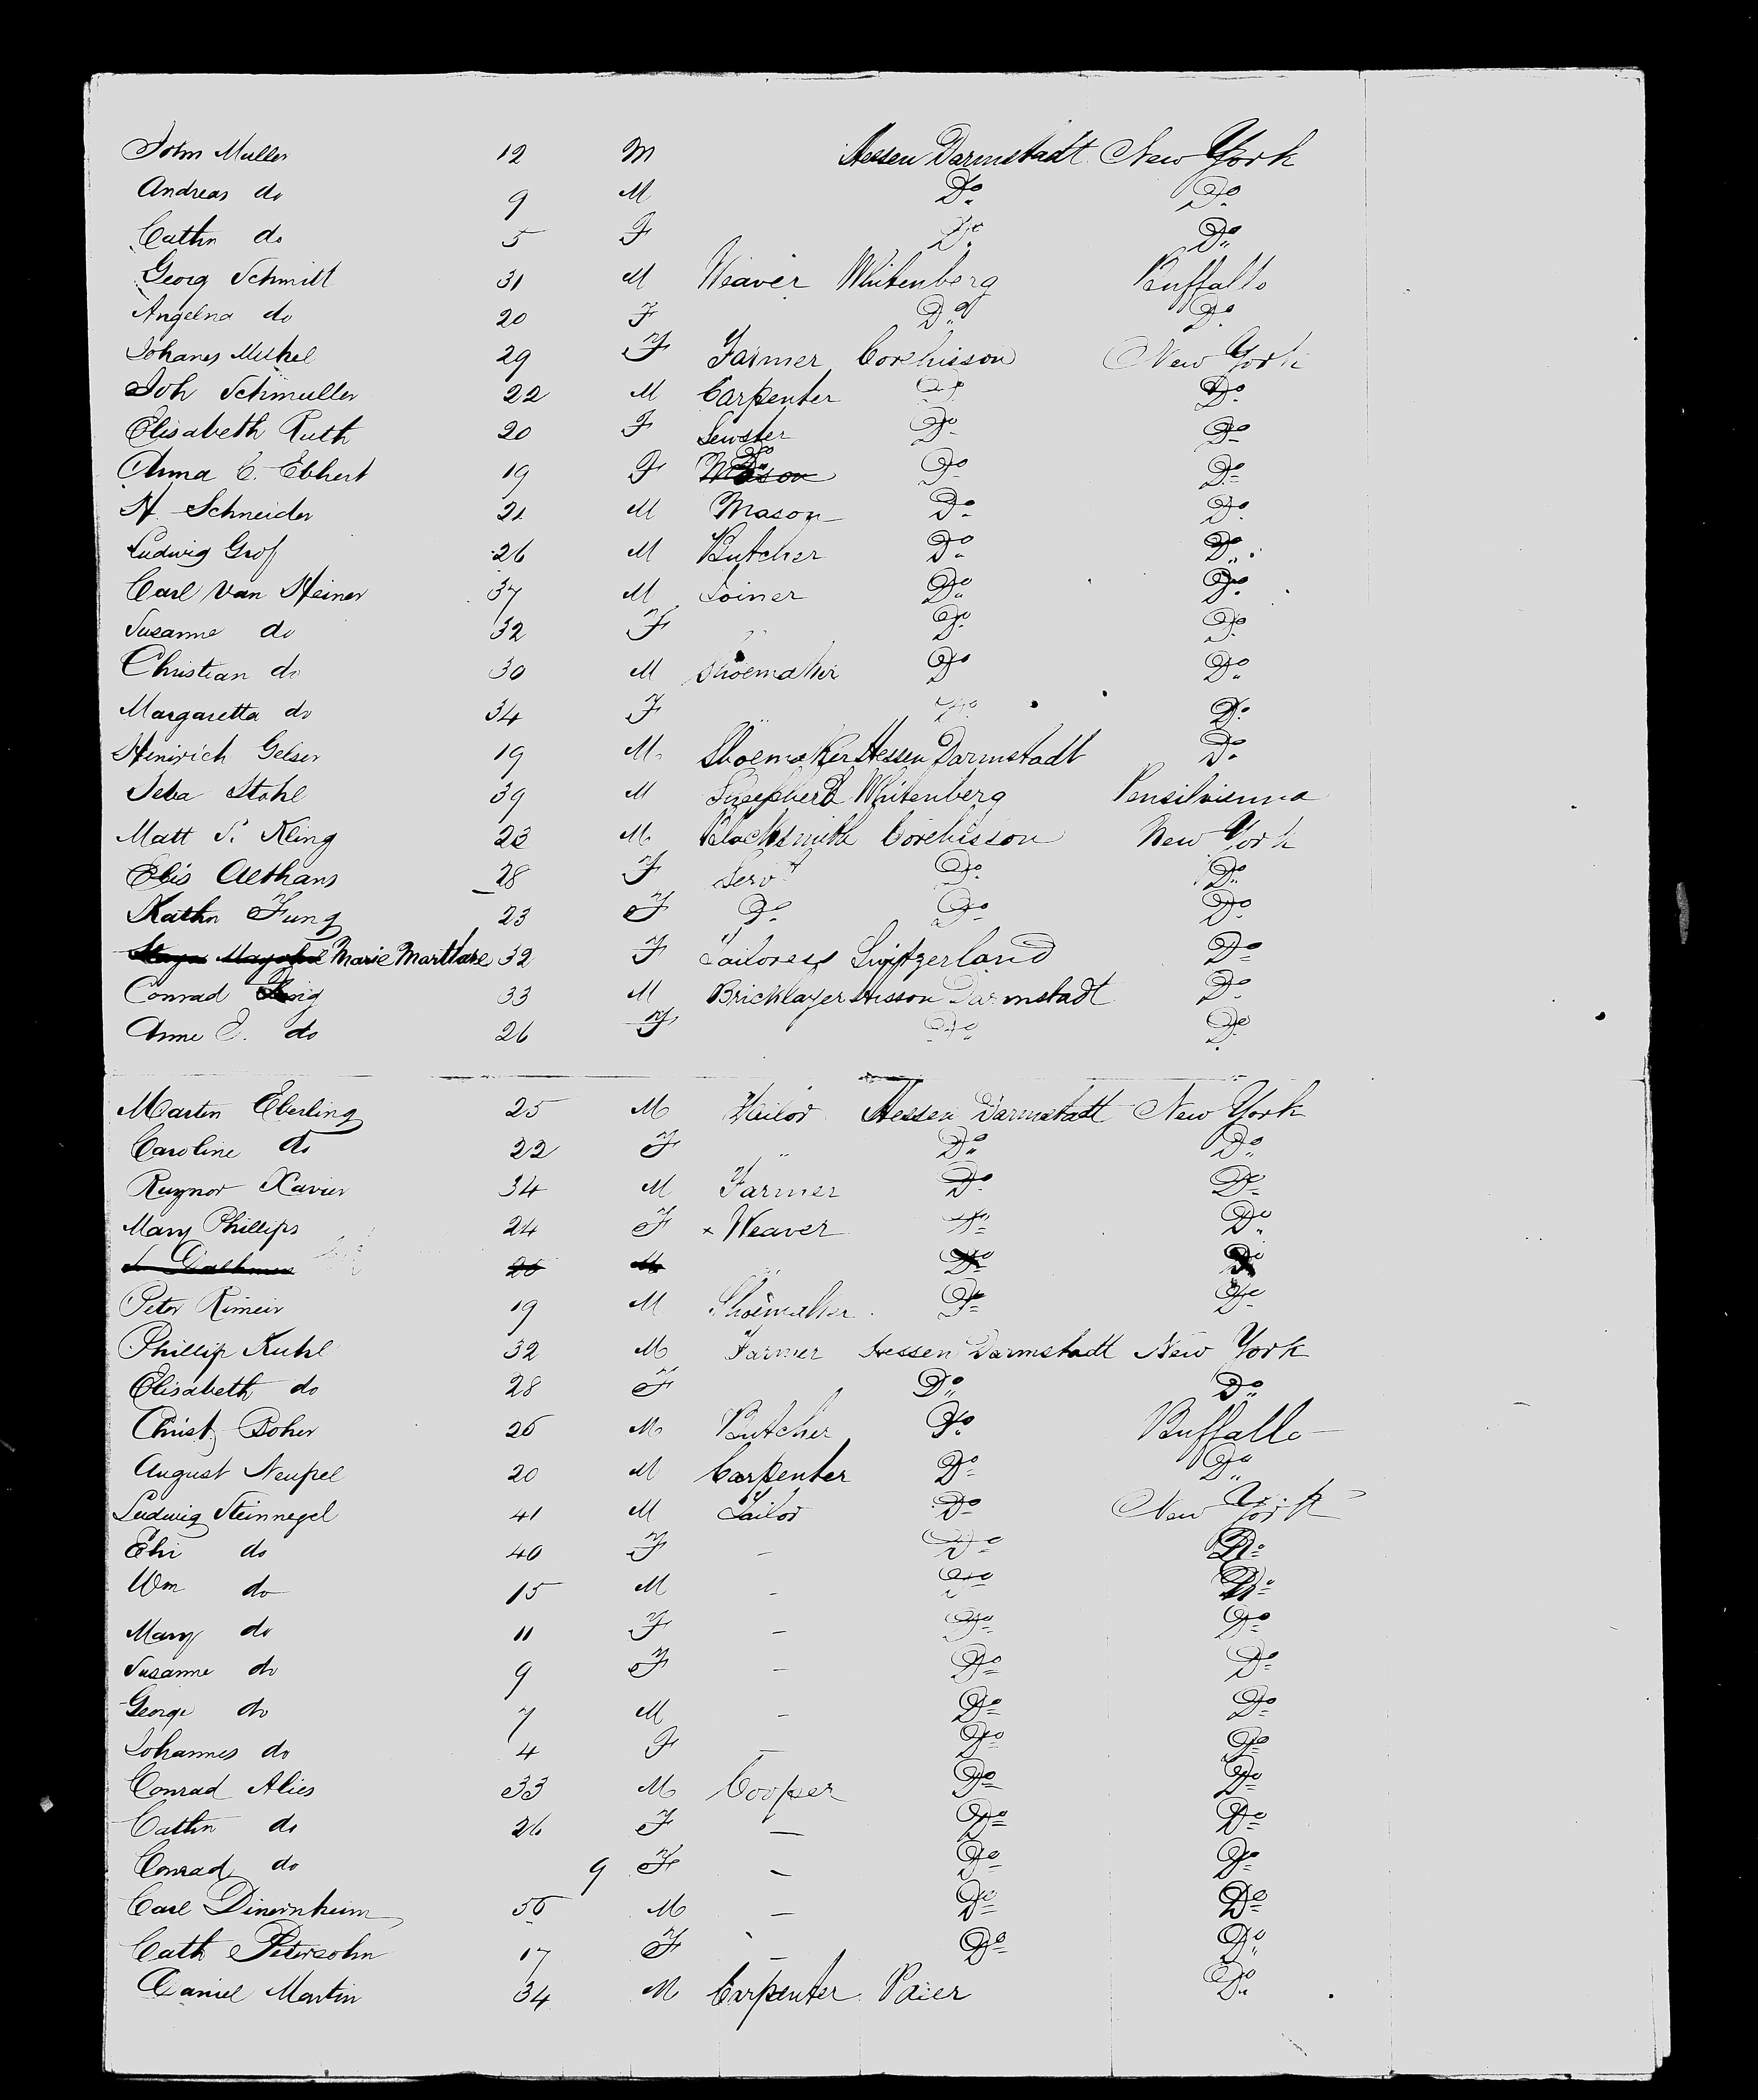 John Muller 12 M Hessen Darmstadt New York
Andreas do 9 M Do Do
Cathn do 5 F Do Do
Georg Schmitt 31 M Weaver Whitenberg Buffallo
Angelna do 20 F Do Do
Johanes Mickel 29 F Farmer Corehisson New York
Joh Schmuller 22 M Carpenter Do Do
Elisabeth Ruth 20 F Sewster Do Do
Anna C. Ebhert 19 F Mason Do Do Do
H Schneider 21 M Mason Do Do
Ludwig Grof 26 M Butcher Do Do
Carl Van Heiner 37 M Joiner Do Do
Susanne do 32 F " Do Do
Christian do 30 M Shoemaker Do Do
Margaretta do 34 F " Do Do
Heinrich Gelser 19 M Shoemaker Hessen Darmstadt Do
Seba Stohl 39 M Sheepherd Whitenberg Pensilvienna
Matt S. Kling 23 M Blacksmith Corehisson New York
Elis Aethans 28 F Servt Do Do
Kathn Fung 23 F Do Do Do
Marie Marthare 32 F Tailoress Switzerland Do
Conrad 33 M Bricklayer Hesson Darmstadt Do
Anne E. do 26 F Do Do
Martin Eberling 25 M Tailor Hessen Darmstadt New York
Caroline do 22 F " Do Do
Raynor Xavier 34 M Farmer Do Do
Mary Phillips 24 F x Weaver Do Do
26 M " Do Do
Peter Rimeir 19 M Shoemaker Do Do
Phillip Kuhl 32 M Farmer Hessen Darmstadt New York
Elisabeth do 28 F Do Do
Christ Boher 26 M Butcher Do Buffallo
August Neupel 20 M Carpenter Do Do
Ludwig Steinnegel 41 M Tailor Do New York
Ehi do 40 F - Do Do
Wm do 15 M - Do Do
Mary do 11 F - Do Do
Susanne do 9 F - Do Do
George do 7 M - Do Do
Johannes do 4 F - Do Do
Conrad Alies 33 M Cooper Do Do
Cathn do 26 F - Do Do
Conrad do 9 F - Do Do
Carl Dinernheim 56 M - Do Do
Cath Petersohn 17 F - Do Do
Daniel Martin 34 M Carpenter Paier Do